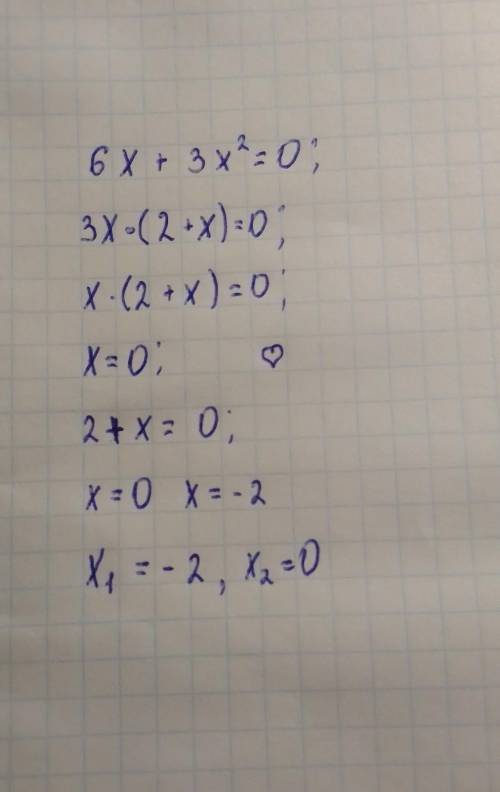 6x + 3x² = 0;
3x·(2+x)=0;
x·(2+x)=0;
x=0; ♡
2+x = 0;
x=0 x=-2
x₁ = -2, x₂=0